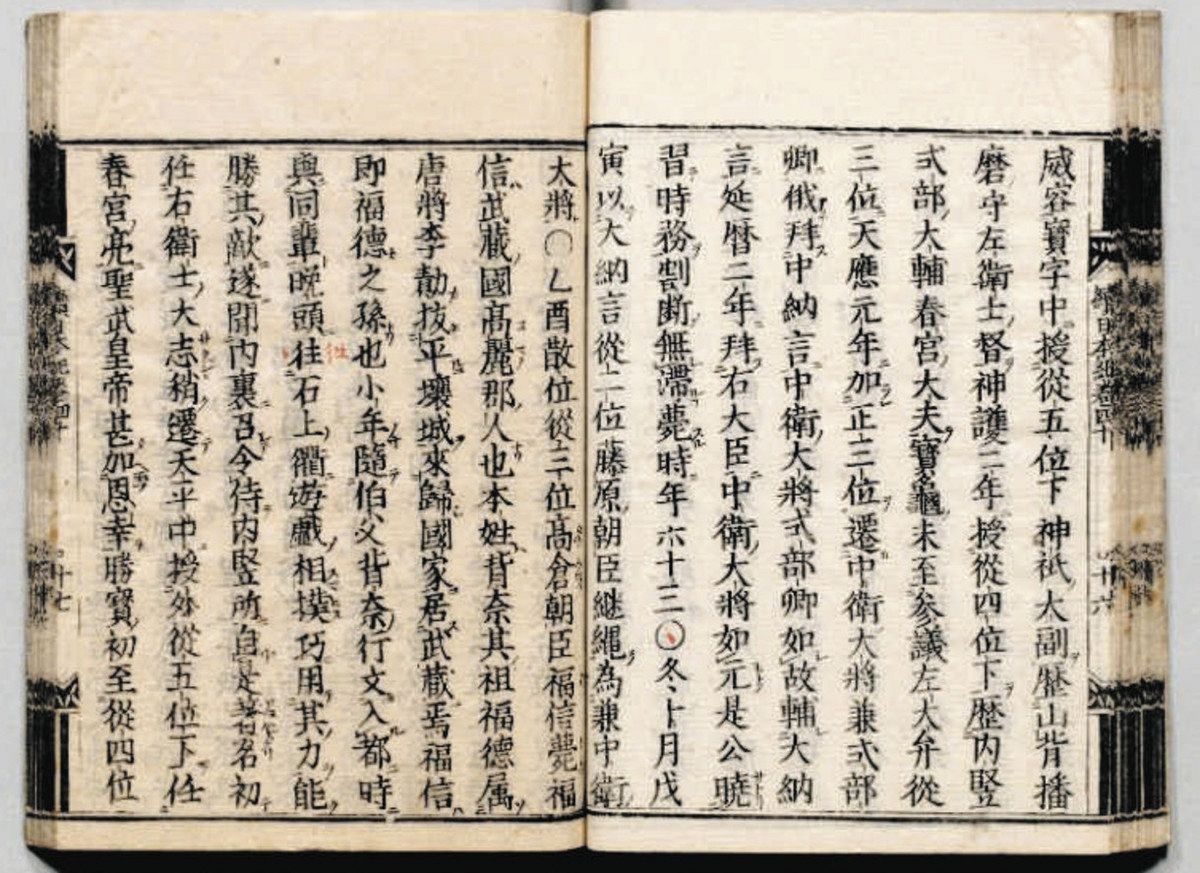 威容寶字中授從五位下神祇大副歷山背播
磨守左衛士督神護二年授從四位下歷内竪
式部大輔春宮大夫寶龜末至參議左大弁從
三位天應元年加正三位遷中衛大將兼式部
卿俄拜中納言中衛大將式部卿如故輔大納
言延曆二年拜右大臣中衛大將如元是公曉
習時務割断無滯薨時年六十三〇冬十月戊
寅以大納言從二位藤原朝臣継繩為兼中衛
大將〇乙酉散位從三位高倉朝臣福信薨福
信武藏國高麗那人也本姓背奈其祖福德属
唐將李勣拔平壤城來歸國家居武藏焉福信
即福德之孫也小年隨伯父背奈行文入都時
與同輩晚頭往石上衢遊戲相撲巧用其力能
勝其敵遂聞内裏召令待内竪所自是著名初
任右衛士大志稍遷天平中授外從五位下任
春宮亮聖武皇帝甚加恩幸勝寶初至從四位
十六
十七